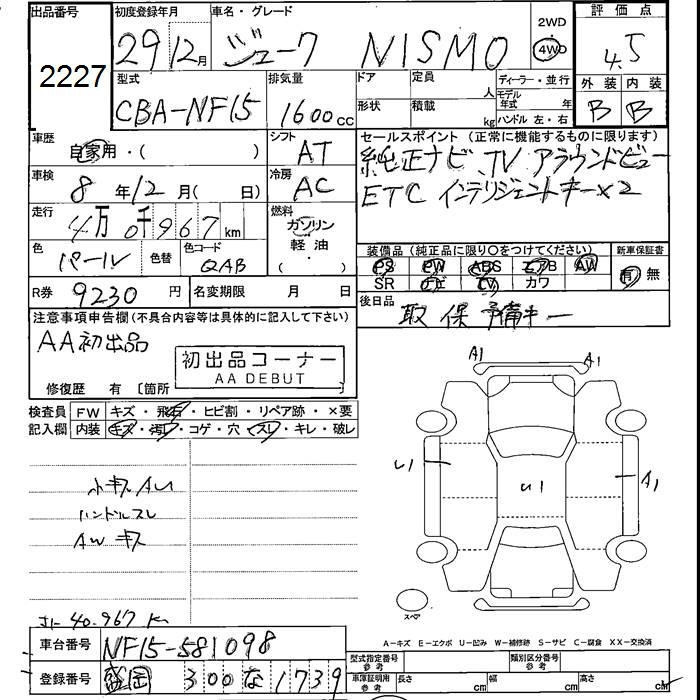 出品番号 初度登録年月 車名・グレード 2WD 評価点
2227 29 12月 ジューク NISMO 4WD 4.5
型式 排気量 ドア 定員 ディーラー・並行 外装 内装
CBA-NF15 1600cc 人 モデル年式 年 B B
形状 積載 kg ハンドル 左・右
車歴 シフト セールスポイント (正常に機能するものに限ります)
自家用・( ) AT 純正ナビ、TV アラウンドビュー
車検 冷房 ETC インテリジェントキー×2
8年12月(日) AC
走行 燃料
4万0千967km ガソリン
色 色替 色コード 軽油 装備品 (純正品に限り○をつけてください) 新車保証書
パール QAB ・( ) PS PW ABS エアB AW 有 無
SR ナビ TV カワ
R券 9230円 名変期限 月 日 後日品 取 保 予備キー
注意事項申告欄 (不具合内容等は具体的に記入して下さい)
AA初出品
初出品コーナー
AA DEBUT
修復歴 有 〔箇所
検査員 FW キズ・飛石・ヒビ割・リペア跡・×要
記入欄 内装 キズ・汚レ・コゲ・穴・スレ・キレ・破レ
A1 A1
U1 U1 A1
小キズ AU
ハンドルスレ
AW キズ
スペア
40.967 K
A－キズ E－エクボ U－凹み W－補修跡 S－サビ C－腐食 XX－交換済
車台番号 NF15-581098 型式指定番号 参考 類別区分番号 参考
登録番号 盛岡 300 な 1739 車庫証明用 参考 長さ cm 幅 cm 高さ cm